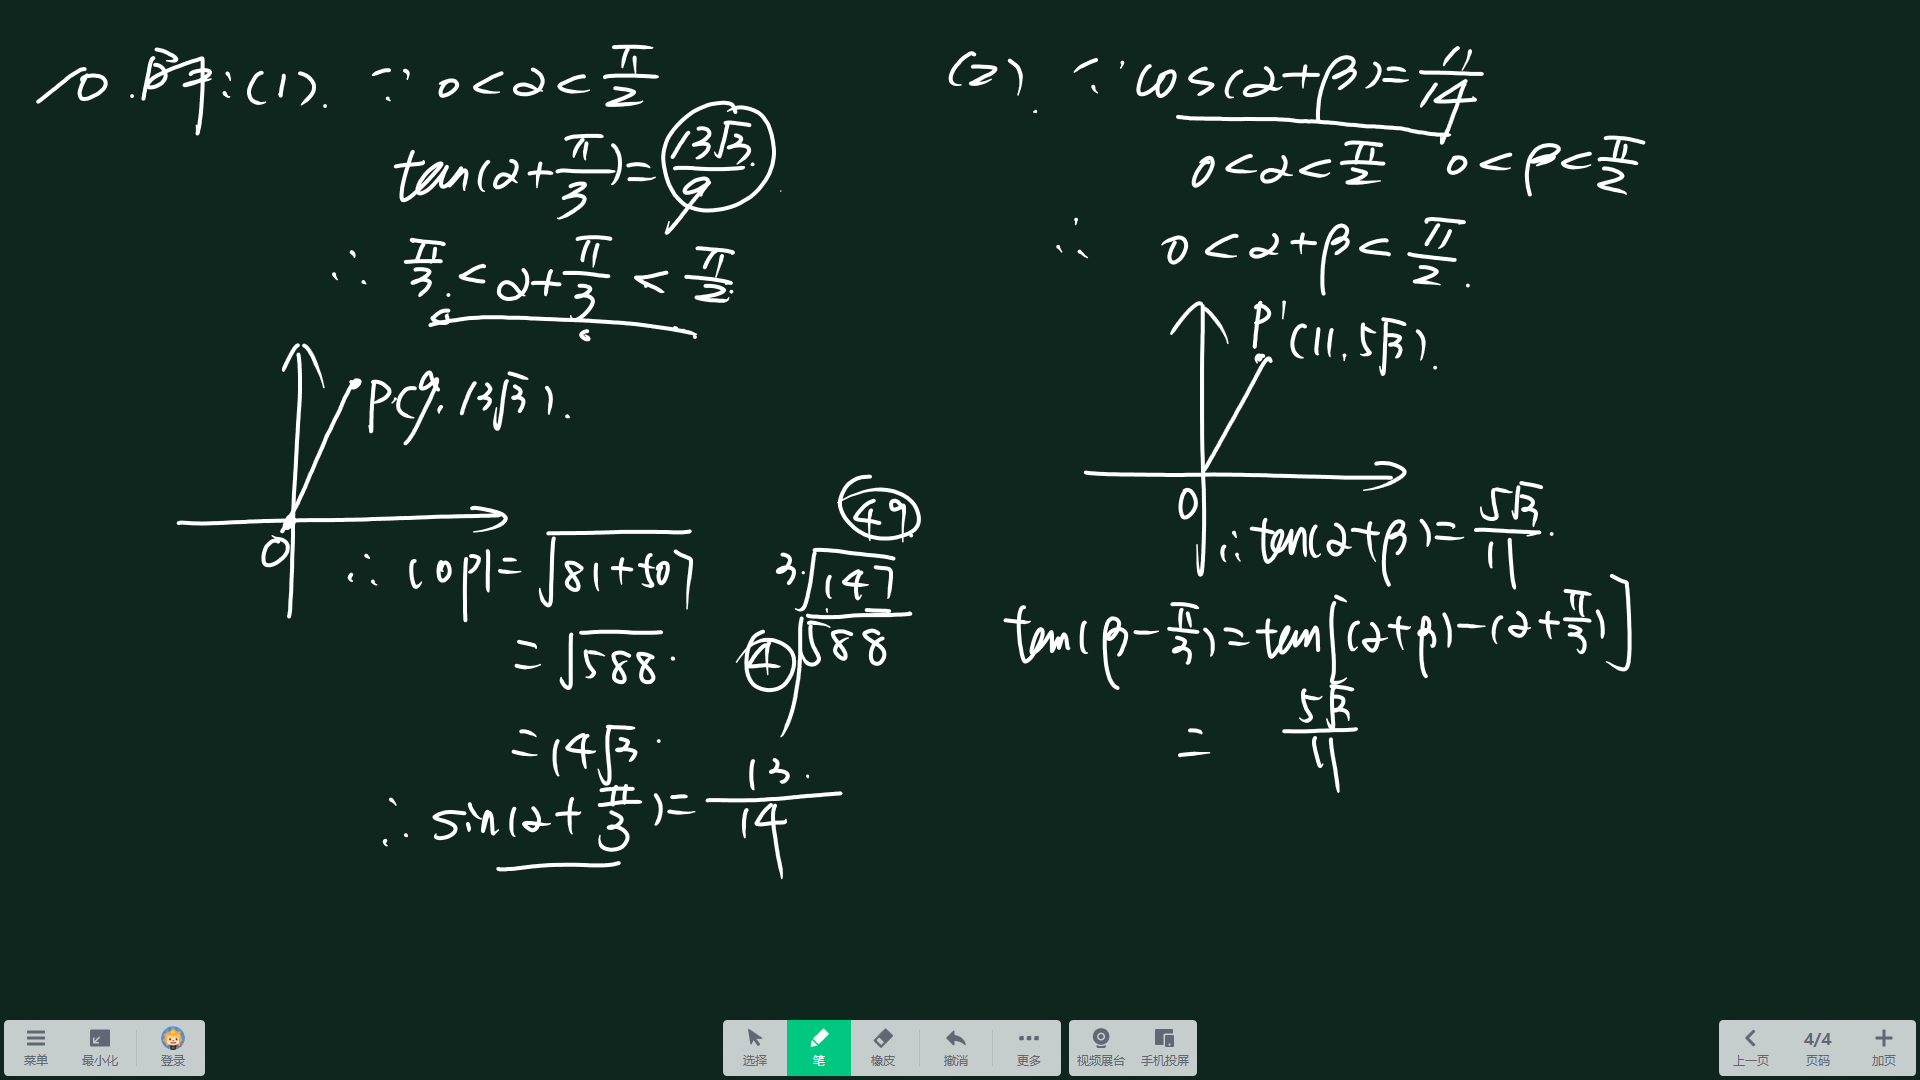 10.解:(1). ∵ 0<α<π/2
tan(α+π/3)=13√3/9
∴ π/3<α+π/3<π/2
P(9,13√3).
O
∴ |OP|=√81+507
=√588.
=14√3.
∴ sin(α+π/3)=13/14
49
3√147
4√588
(2). ∵ cos(α+β)=11/14
0<α<π/2 0<β<π/2
∴ 0<α+β<π/2.
P'(11,5√3).
O
∴tan(α+β)=5√3/11.
tan(β-π/3)=tan[(α+β)-(α+π/3)]
= 5√3/11
菜单 最小化 登录
选择 笔 橡皮 撤消 更多
视频展台 手机投屏
上一页 4/4 页码 加页